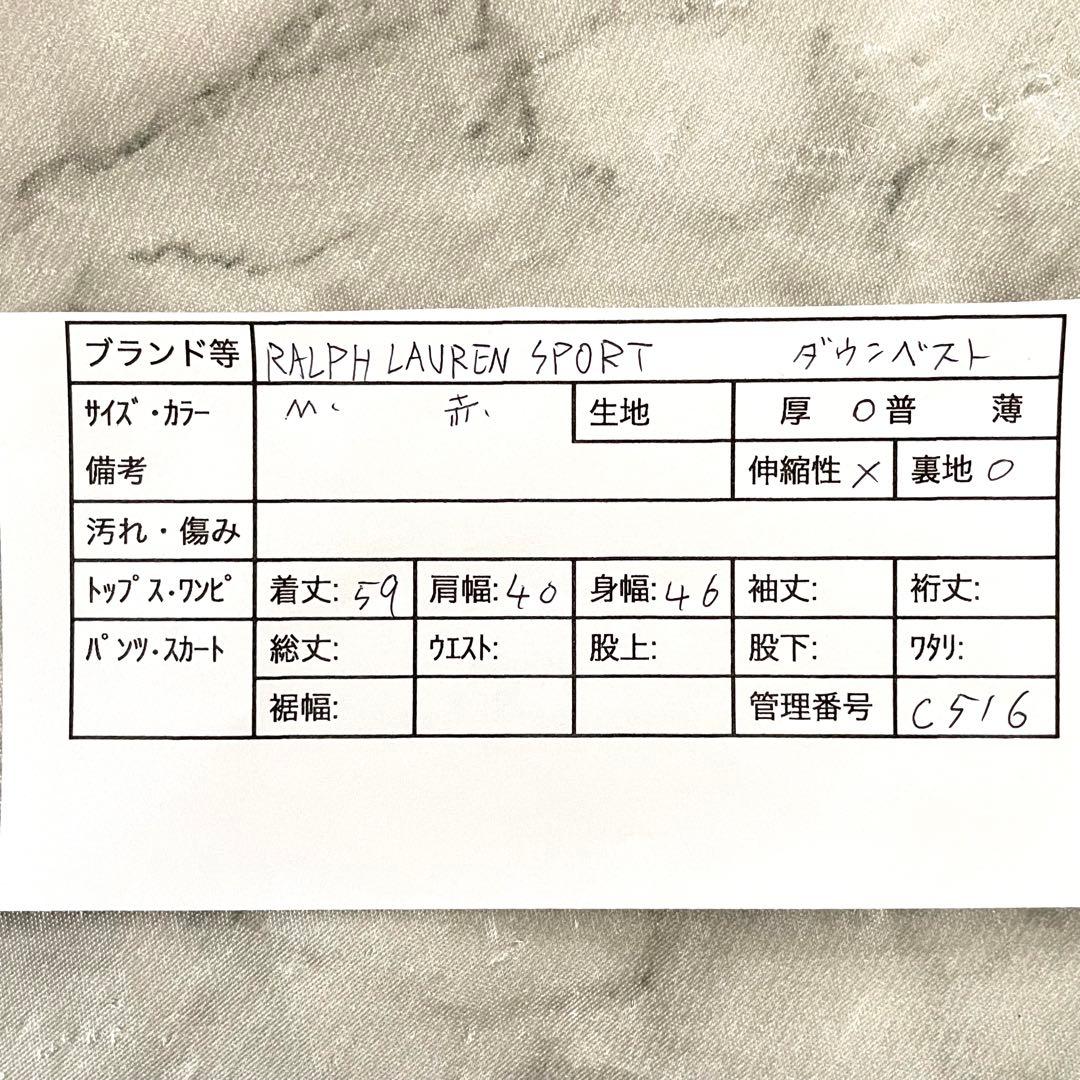 ブランド等 RALPH LAUREN SPORT ダウンベスト
サイズ・カラー M 赤 生地 厚 ○普 薄
備考 伸縮性 × 裏地 ○
汚れ・傷み
トップス・ワンピ 着丈: 59 肩幅: 40 身幅: 46 袖丈: 裄丈:
パンツ・スカート 総丈: ウエスト: 股上: 股下: ワタリ:
裾幅: 管理番号 C516